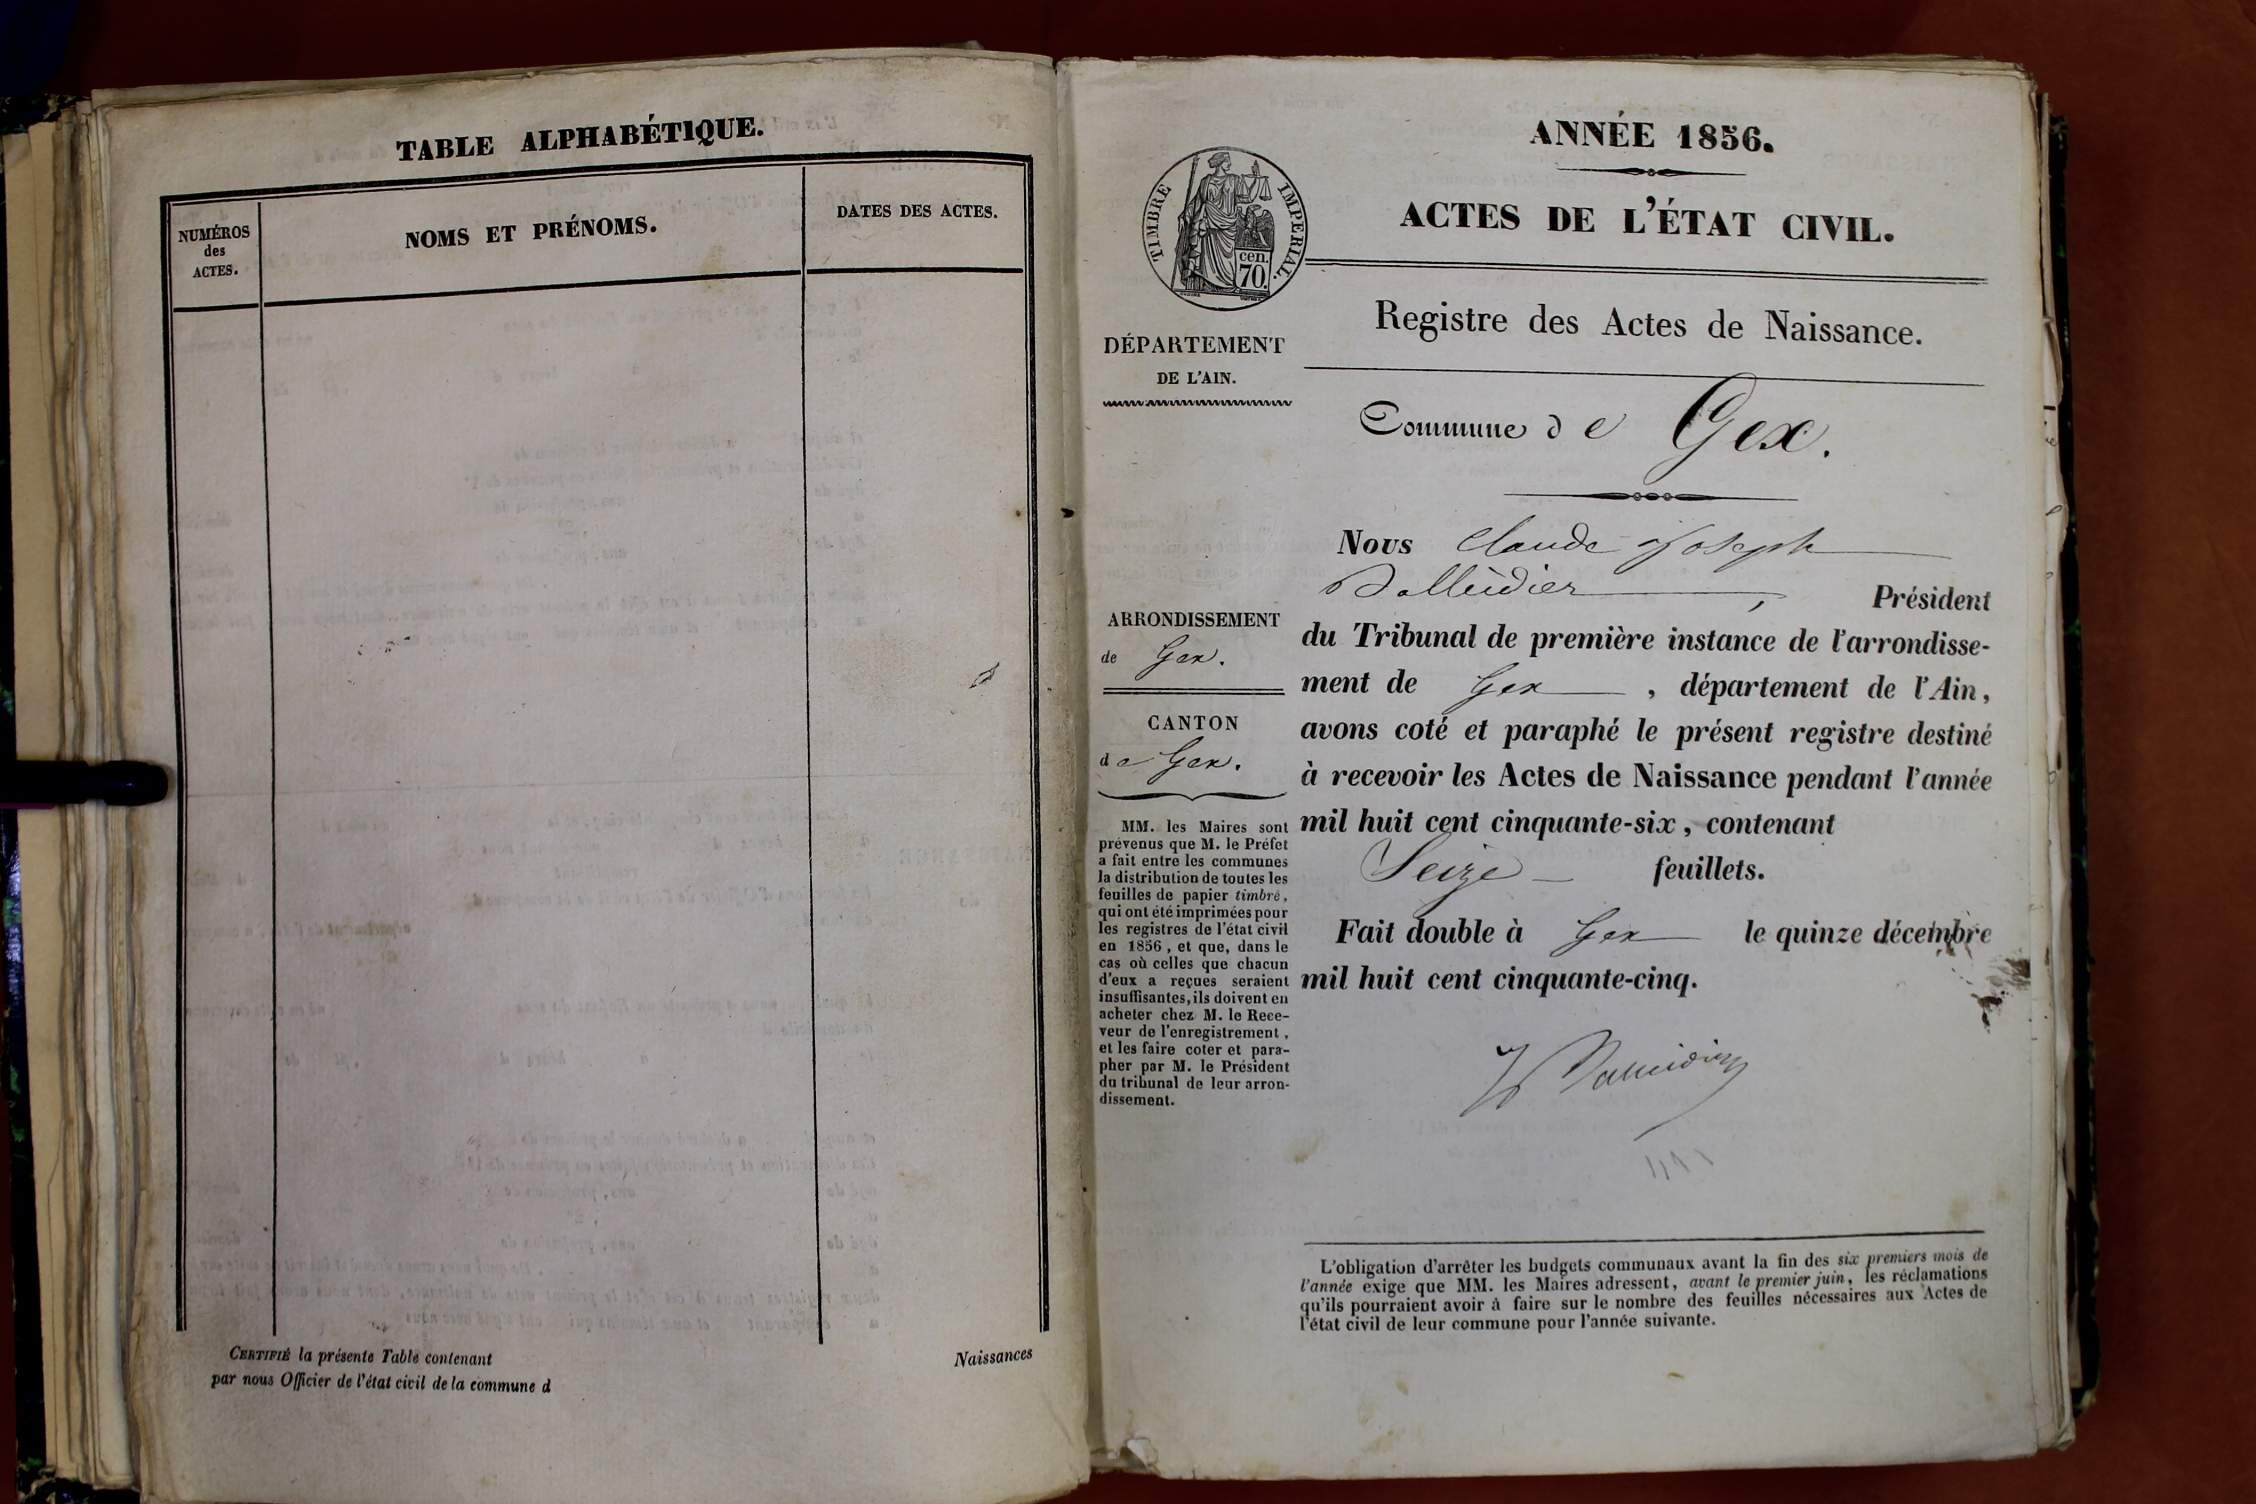 TABLE ALPHABÉTIQUE.
NUMÉROS
des
ACTES.
NOMS ET PRÉNOMS.
DATES DES ACTES.
CERTIFIÉ la présente Table contenant
Naissances
par nous Officier de l'état civil de la commune d
ANNÉE 1856.
ACTES DE L'ÉTAT CIVIL.
TIMBRE IMPERIAL.
cen.
70.
Registre des Actes de Naissance.
DÉPARTEMENT
DE L'AIN.
Commune de Gex.
Nous Claude Joseph
Président
du Tribunal de première instance de l'arrondisse-
ment de Gex, département de l'Ain,
avons coté et paraphé le présent registre destiné
à recevoir les Actes de Naissance pendant l'année
mil huit cent cinquante-six, contenant
Seize feuillets.
Fait double à Gex le quinze décembre
mil huit cent cinquante-cinq.
ARRONDISSEMENT
de Gex.
CANTON
de Gex.
MM. les Maires sont
prévenus que M. le Préfet
a fait entre les communes
la distribution de toutes les
feuilles de papier timbré,
qui ont été imprimées pour
les registres de l'état civil
en 1856, et que, dans le
cas où celles que chacun
d'eux a reçues seraient
insuffisantes, ils doivent en
acheter chez M. le Rece-
veur de l'enregistrement,
et les faire coter et para-
pher par M. le Président
du tribunal de leur arron-
dissement.
L'obligation d'arrêter les budgets communaux avant la fin des six premiers mois de
l'année exige que MM. les Maires adressent, avant le premier juin, les réclamations
qu'ils pourraient avoir à faire sur le nombre des feuilles nécessaires aux Actes de
l'état civil de leur commune pour l'année suivante.